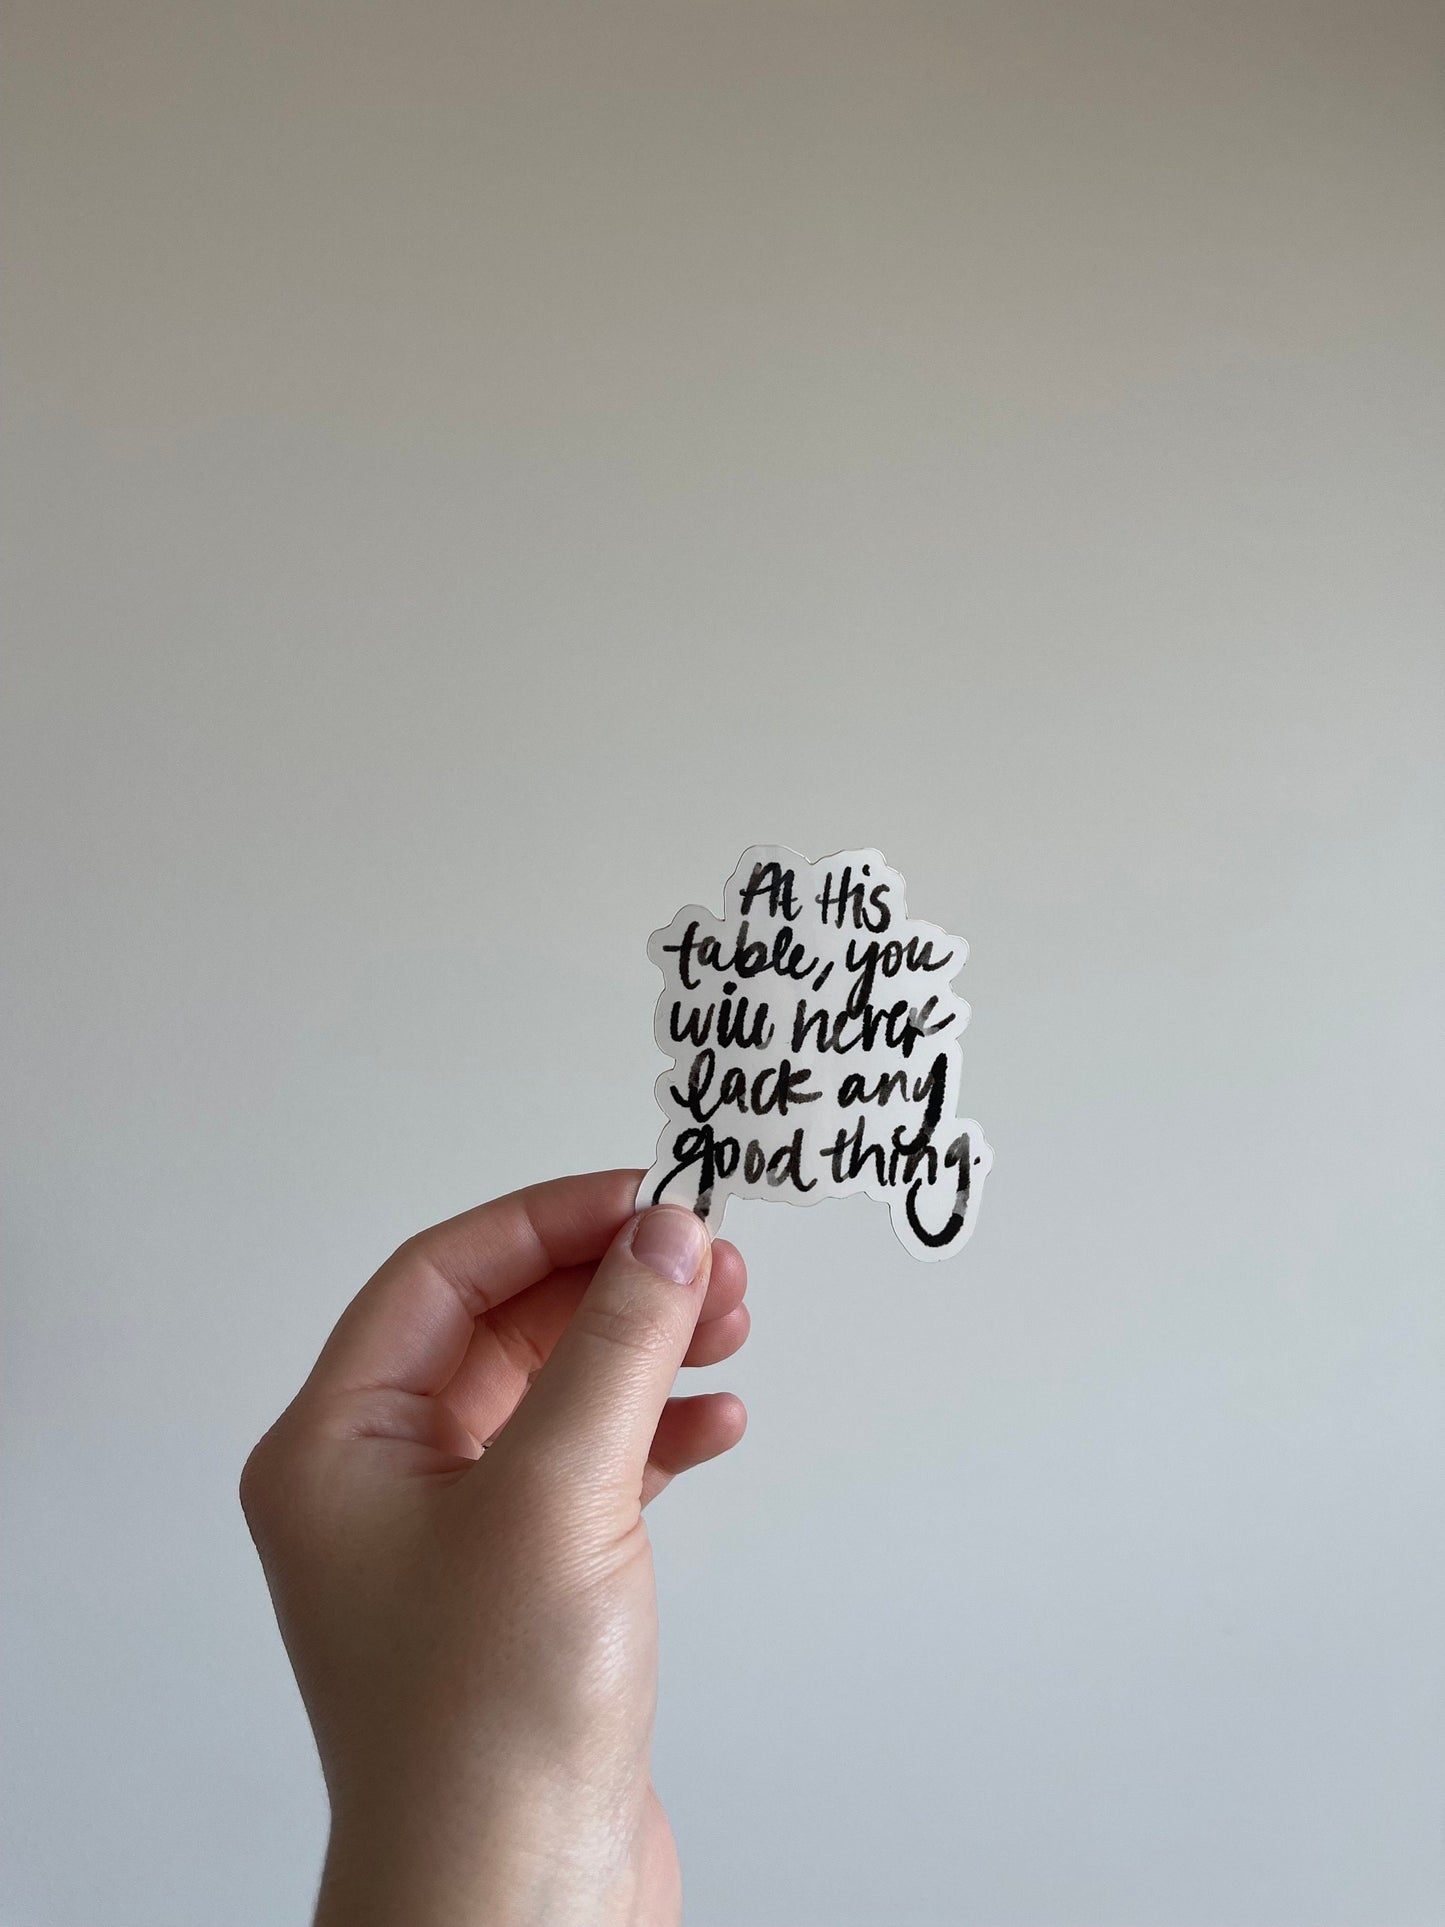 At His
table, you
will never
lack any
good thing.